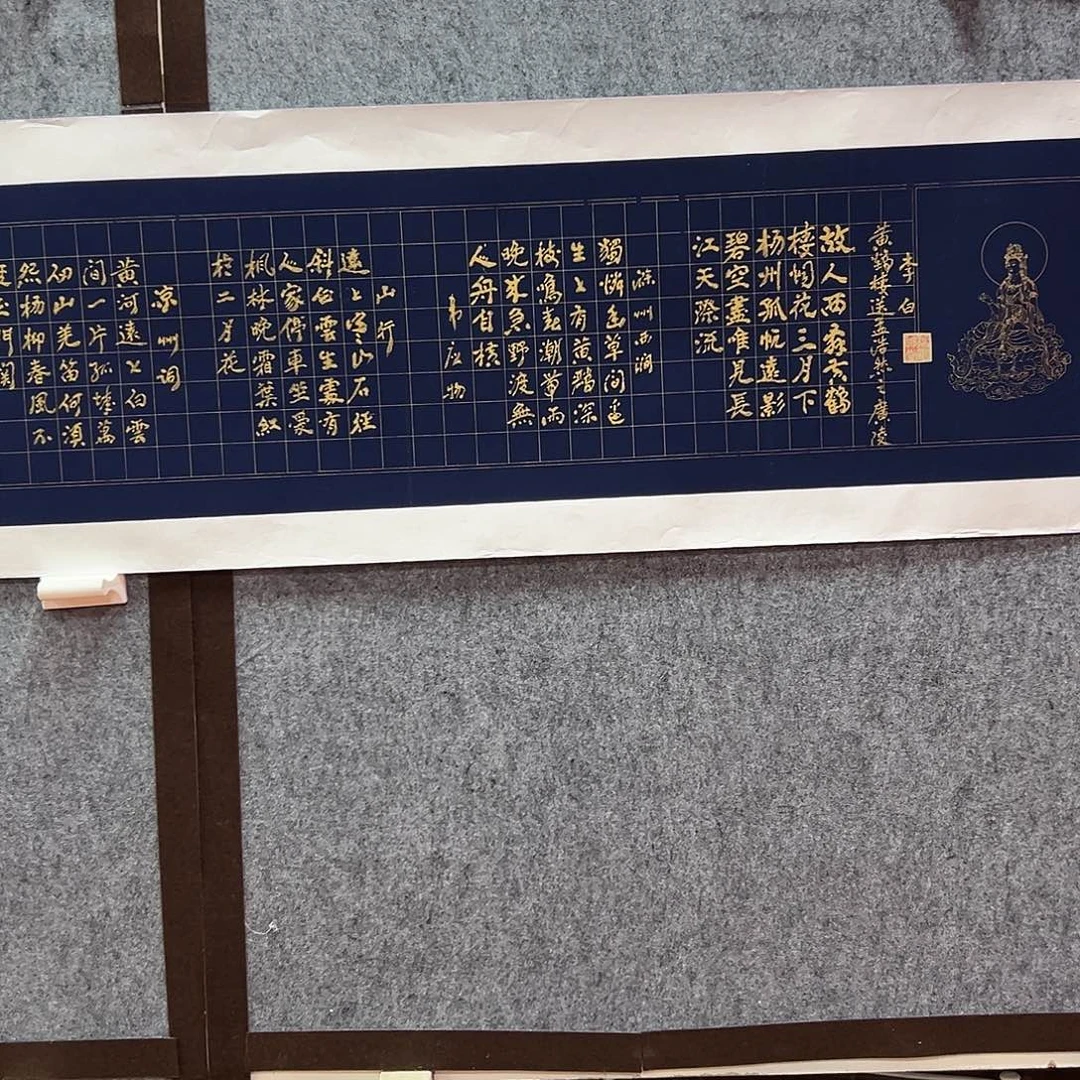 李白
黄鶴樓送孟浩然之廣陵
故人西辞黄鶴
樓烟花三月下
杨州孤帆遠影
碧空盡唯見長
江天際流
滁州西澗
獨憐幽草澗邊
生上有黄鸝深
枝鳴春潮帶雨
晚来急野渡無
人舟自横
韦应物
山行
遠上寒山石徑
斜白雲生處有
人家停車坐愛
楓林晚霜葉红
於二月花
凉州词
黄河遠上白雲
間一片孤城萬
仞山羌笛何須
怨杨柳春風不
度玉門関